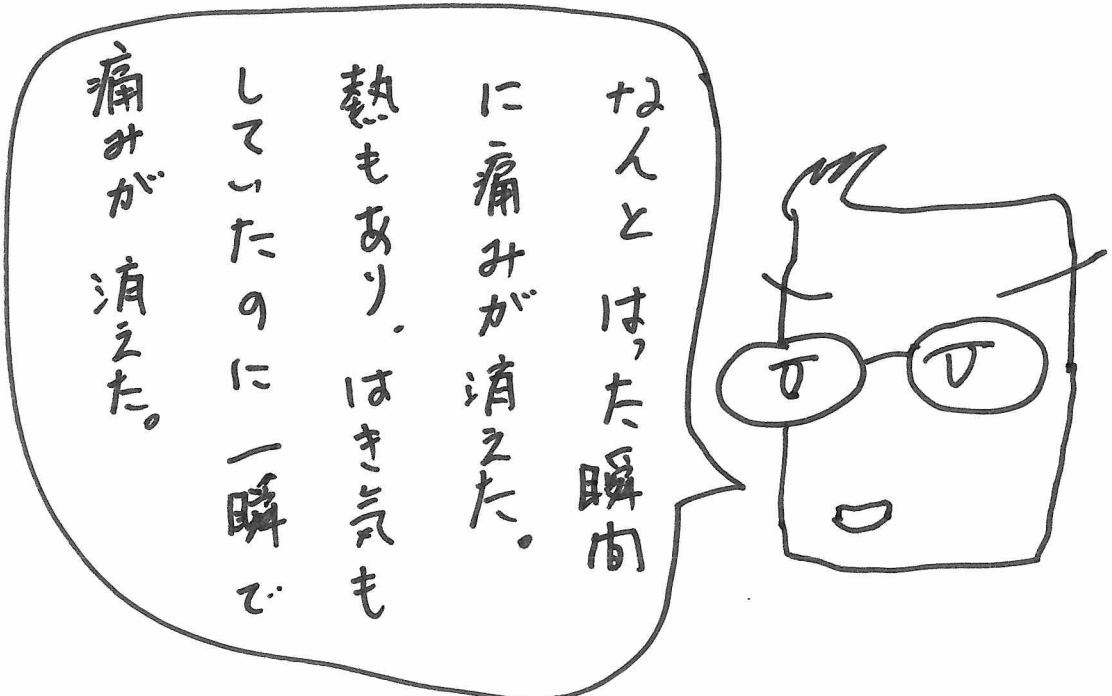 なんとはった瞬間
に痛みが消えた。
熱もあり、はき気も
していたのに一瞬で
痛みが消えた。